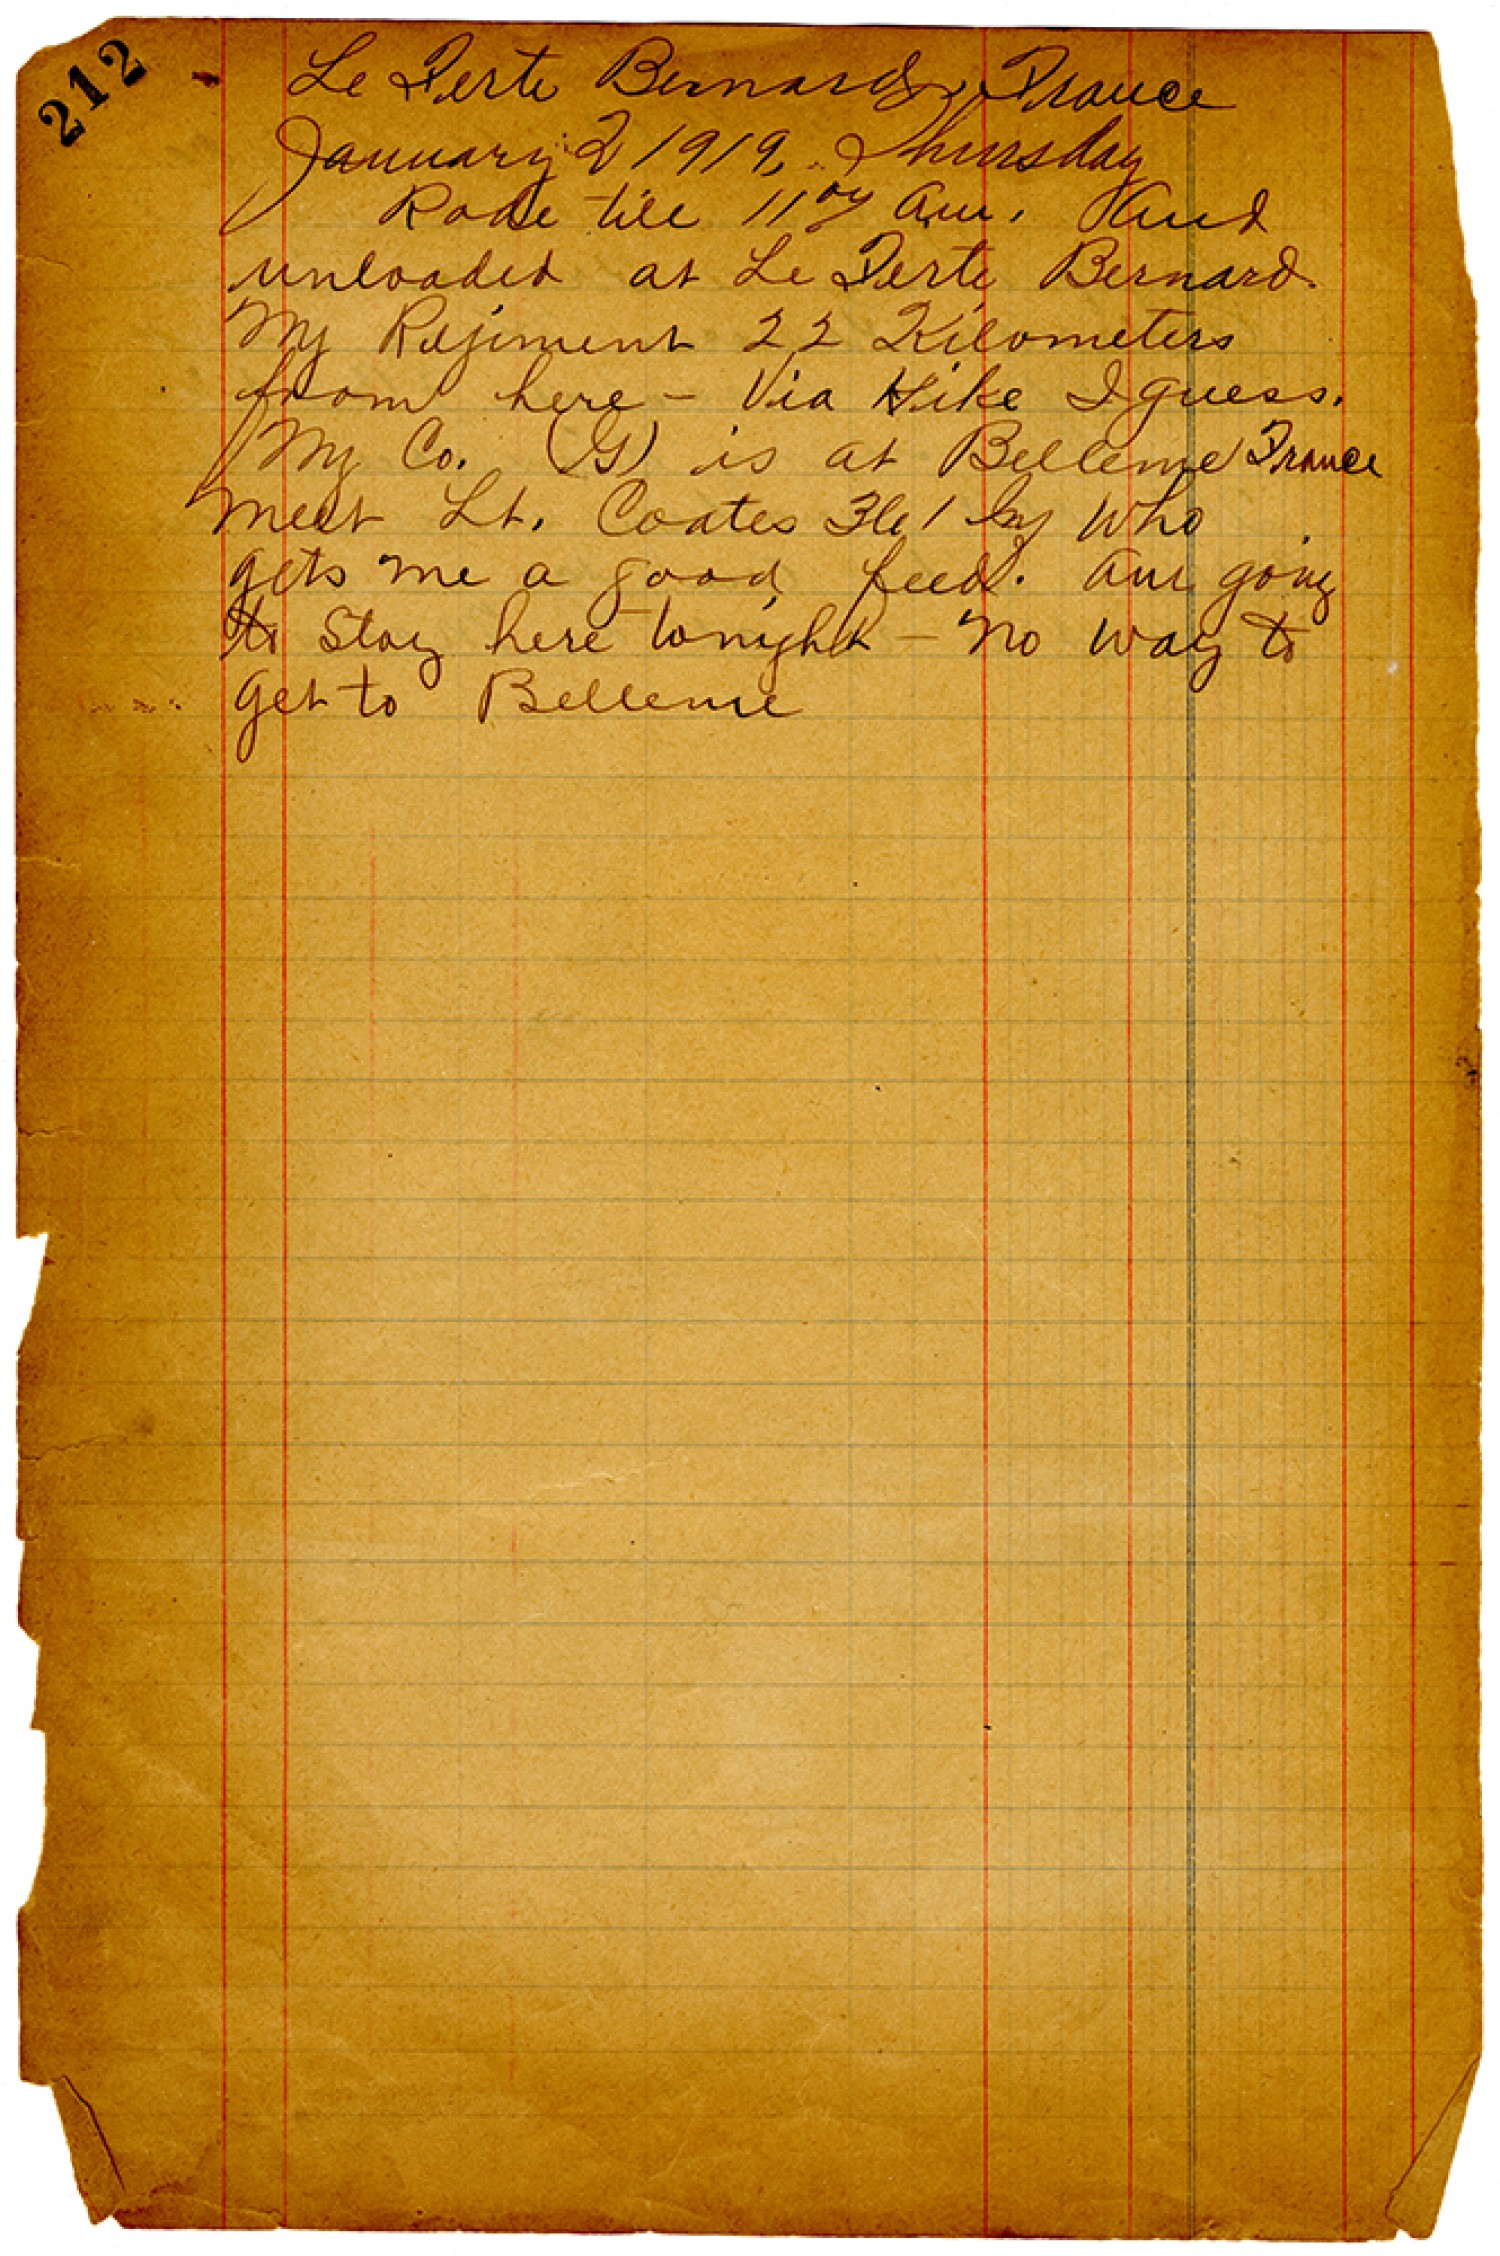 212
Le Ferte Bernard, France
January 2 1919, Thursday
Rode till 11 00 Am. And
unloaded at Le Ferte Bernard.
My Rejiment 22 Kilometers
from here – Via Hike I guess.
My Co. (G) is at Belleme France
meet Lt. Coates 361 by who
gets me a good feed. Am going
to stay here tonight – No way to
get to Belleme